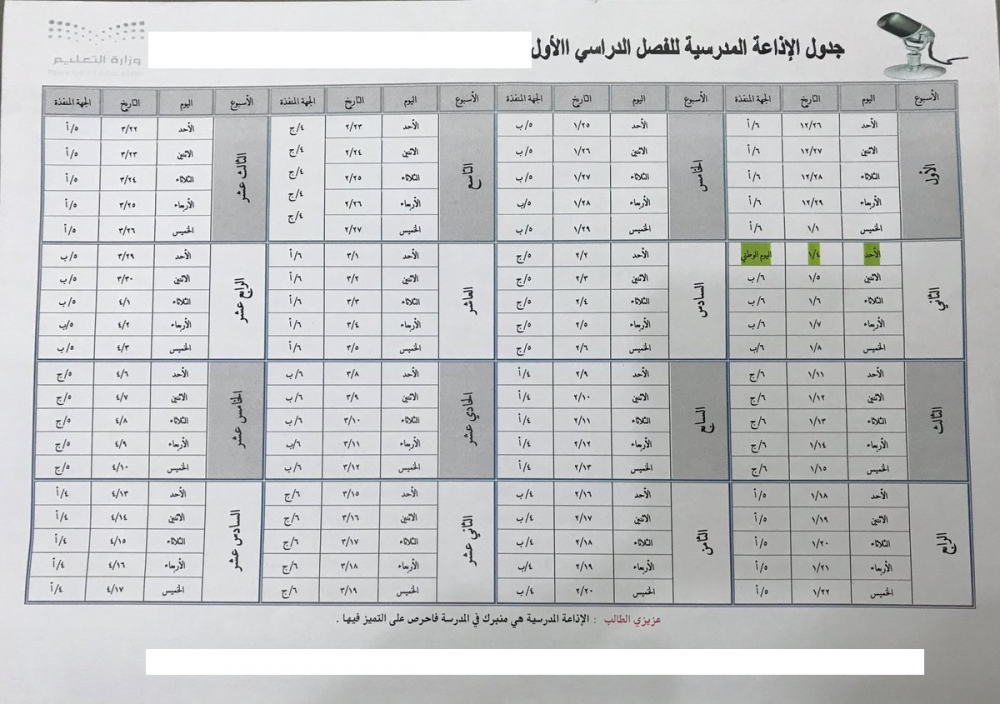 جدول الإذاعة المدرسية للفصل الدراسي االأول
وزارة التعليم
Ministry of Education
الأسبوع اليوم التاريخ الجهة المنفذة الأسبوع اليوم التاريخ الجهة المنفذة الأسبوع اليوم التاريخ الجهة المنفذة الأسبوع اليوم التاريخ الجهة المنفذة
الأحد ١٢/٢٦ ٦/أ الأحد ١/٢٥ ٥/ب الأحد ٢/٢٣ ٤/ج الأحد ٣/٢٢ ٥/أ
الاثنين ١٢/٢٧ ٦/أ الاثنين ١/٢٦ ٥/ب الاثنين ٢/٢٤ ٤/ج الاثنين ٣/٢٣ ٥/أ
الأول الثلاثاء ١٢/٢٨ ٦/أ الخامس الثلاثاء ١/٢٧ ٥/ب التاسع الثلاثاء ٢/٢٥ ٤/ج الثالث عشر الثلاثاء ٣/٢٤ ٥/أ
الأربعاء ١٢/٢٩ ٦/أ الأربعاء ١/٢٨ ٥/ب الأربعاء ٢/٢٦ ٤/ج الأربعاء ٣/٢٥ ٥/أ
الخميس ١/١ ٦/أ الخميس ١/٢٩ ٥/ب الخميس ٢/٢٧ ٤/ج الخميس ٣/٢٦ ٥/أ
الأحد ١/٤ اليوم الوطني الأحد ٢/٢ ٥/ج الأحد ٣/١ ٦/أ الأحد ٣/٢٩ ٥/ب
الاثنين ١/٥ ٦/ب الاثنين ٢/٣ ٥/ج الاثنين ٣/٢ ٦/أ الاثنين ٣/٣٠ ٥/ب
الثاني الثلاثاء ١/٦ ٦/ب السادس الثلاثاء ٢/٤ ٥/ج العاشر الثلاثاء ٣/٣ ٦/أ الرابع عشر الثلاثاء ٤/١ ٥/ب
الأربعاء ١/٧ ٦/ب الأربعاء ٢/٥ ٥/ج الأربعاء ٣/٤ ٦/أ الأربعاء ٤/٢ ٥/ب
الخميس ١/٨ ٦/ب الخميس ٢/٦ ٥/ج الخميس ٣/٥ ٦/أ الخميس ٤/٣ ٥/ب
الأحد ١/١١ ٦/ج الأحد ٢/٩ ٤/أ الأحد ٣/٨ ٦/ب الأحد ٤/٦ ٥/ج
الاثنين ١/١٢ ٦/ج الاثنين ٢/١٠ ٤/أ الاثنين ٣/٩ ٦/ب الاثنين ٤/٧ ٥/ج
الثالث الثلاثاء ١/١٣ ٦/ج السابع الثلاثاء ٢/١١ ٤/أ الحادي عشر الثلاثاء ٣/١٠ ٦/ب الخامس عشر الثلاثاء ٤/٨ ٥/ج
الأربعاء ١/١٤ ٦/ج الأربعاء ٢/١٢ ٤/أ الأربعاء ٣/١١ ٦/ب الأربعاء ٤/٩ ٥/ج
الخميس ١/١٥ ٦/ج الخميس ٢/١٣ ٤/أ الخميس ٣/١٢ ٦/ب الخميس ٤/١٠ ٥/ج
الأحد ١/١٨ ٥/أ الأحد ٢/١٦ ٤/ب الأحد ٣/١٥ ٦/ج الأحد ٤/١٣ ٤/أ
الاثنين ١/١٩ ٥/أ الاثنين ٢/١٧ ٤/ب الاثنين ٣/١٦ ٦/ج الاثنين ٤/١٤ ٤/أ
الرابع الثلاثاء ١/٢٠ ٥/أ الثامن الثلاثاء ٢/١٨ ٤/ب الثاني عشر الثلاثاء ٣/١٧ ٦/ج السادس عشر الثلاثاء ٤/١٥ ٤/أ
الأربعاء ١/٢١ ٥/أ الأربعاء ٢/١٩ ٤/ب الأربعاء ٣/١٨ ٦/ج الأربعاء ٤/١٦ ٤/أ
الخميس ١/٢٢ ٥/أ الخميس ٢/٢٠ ٤/ب الخميس ٣/١٩ ٦/ج الخميس ٤/١٧ ٤/أ
عزيزي الطالب : الإذاعة المدرسية هي منبرك في المدرسة فاحرص على التميز فيها .